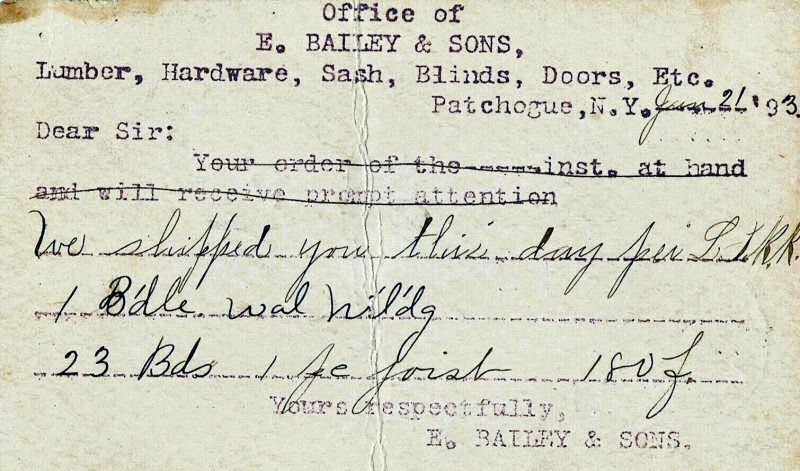 Office of
E. BAILEY & SONS,
Lumber, Hardware, Sash, Blinds, Doors, Etc.
Patchogue, N.Y. Jun 21 '93.
Dear Sir:
Your order of the ---- inst. at hand
and will receive prompt attention
We shipped you this day per L.I.R.R.
1 B'dle wal
23 Bds 1 pc joist 180 f
Yours respectfully,
E. BAILEY & SONS.